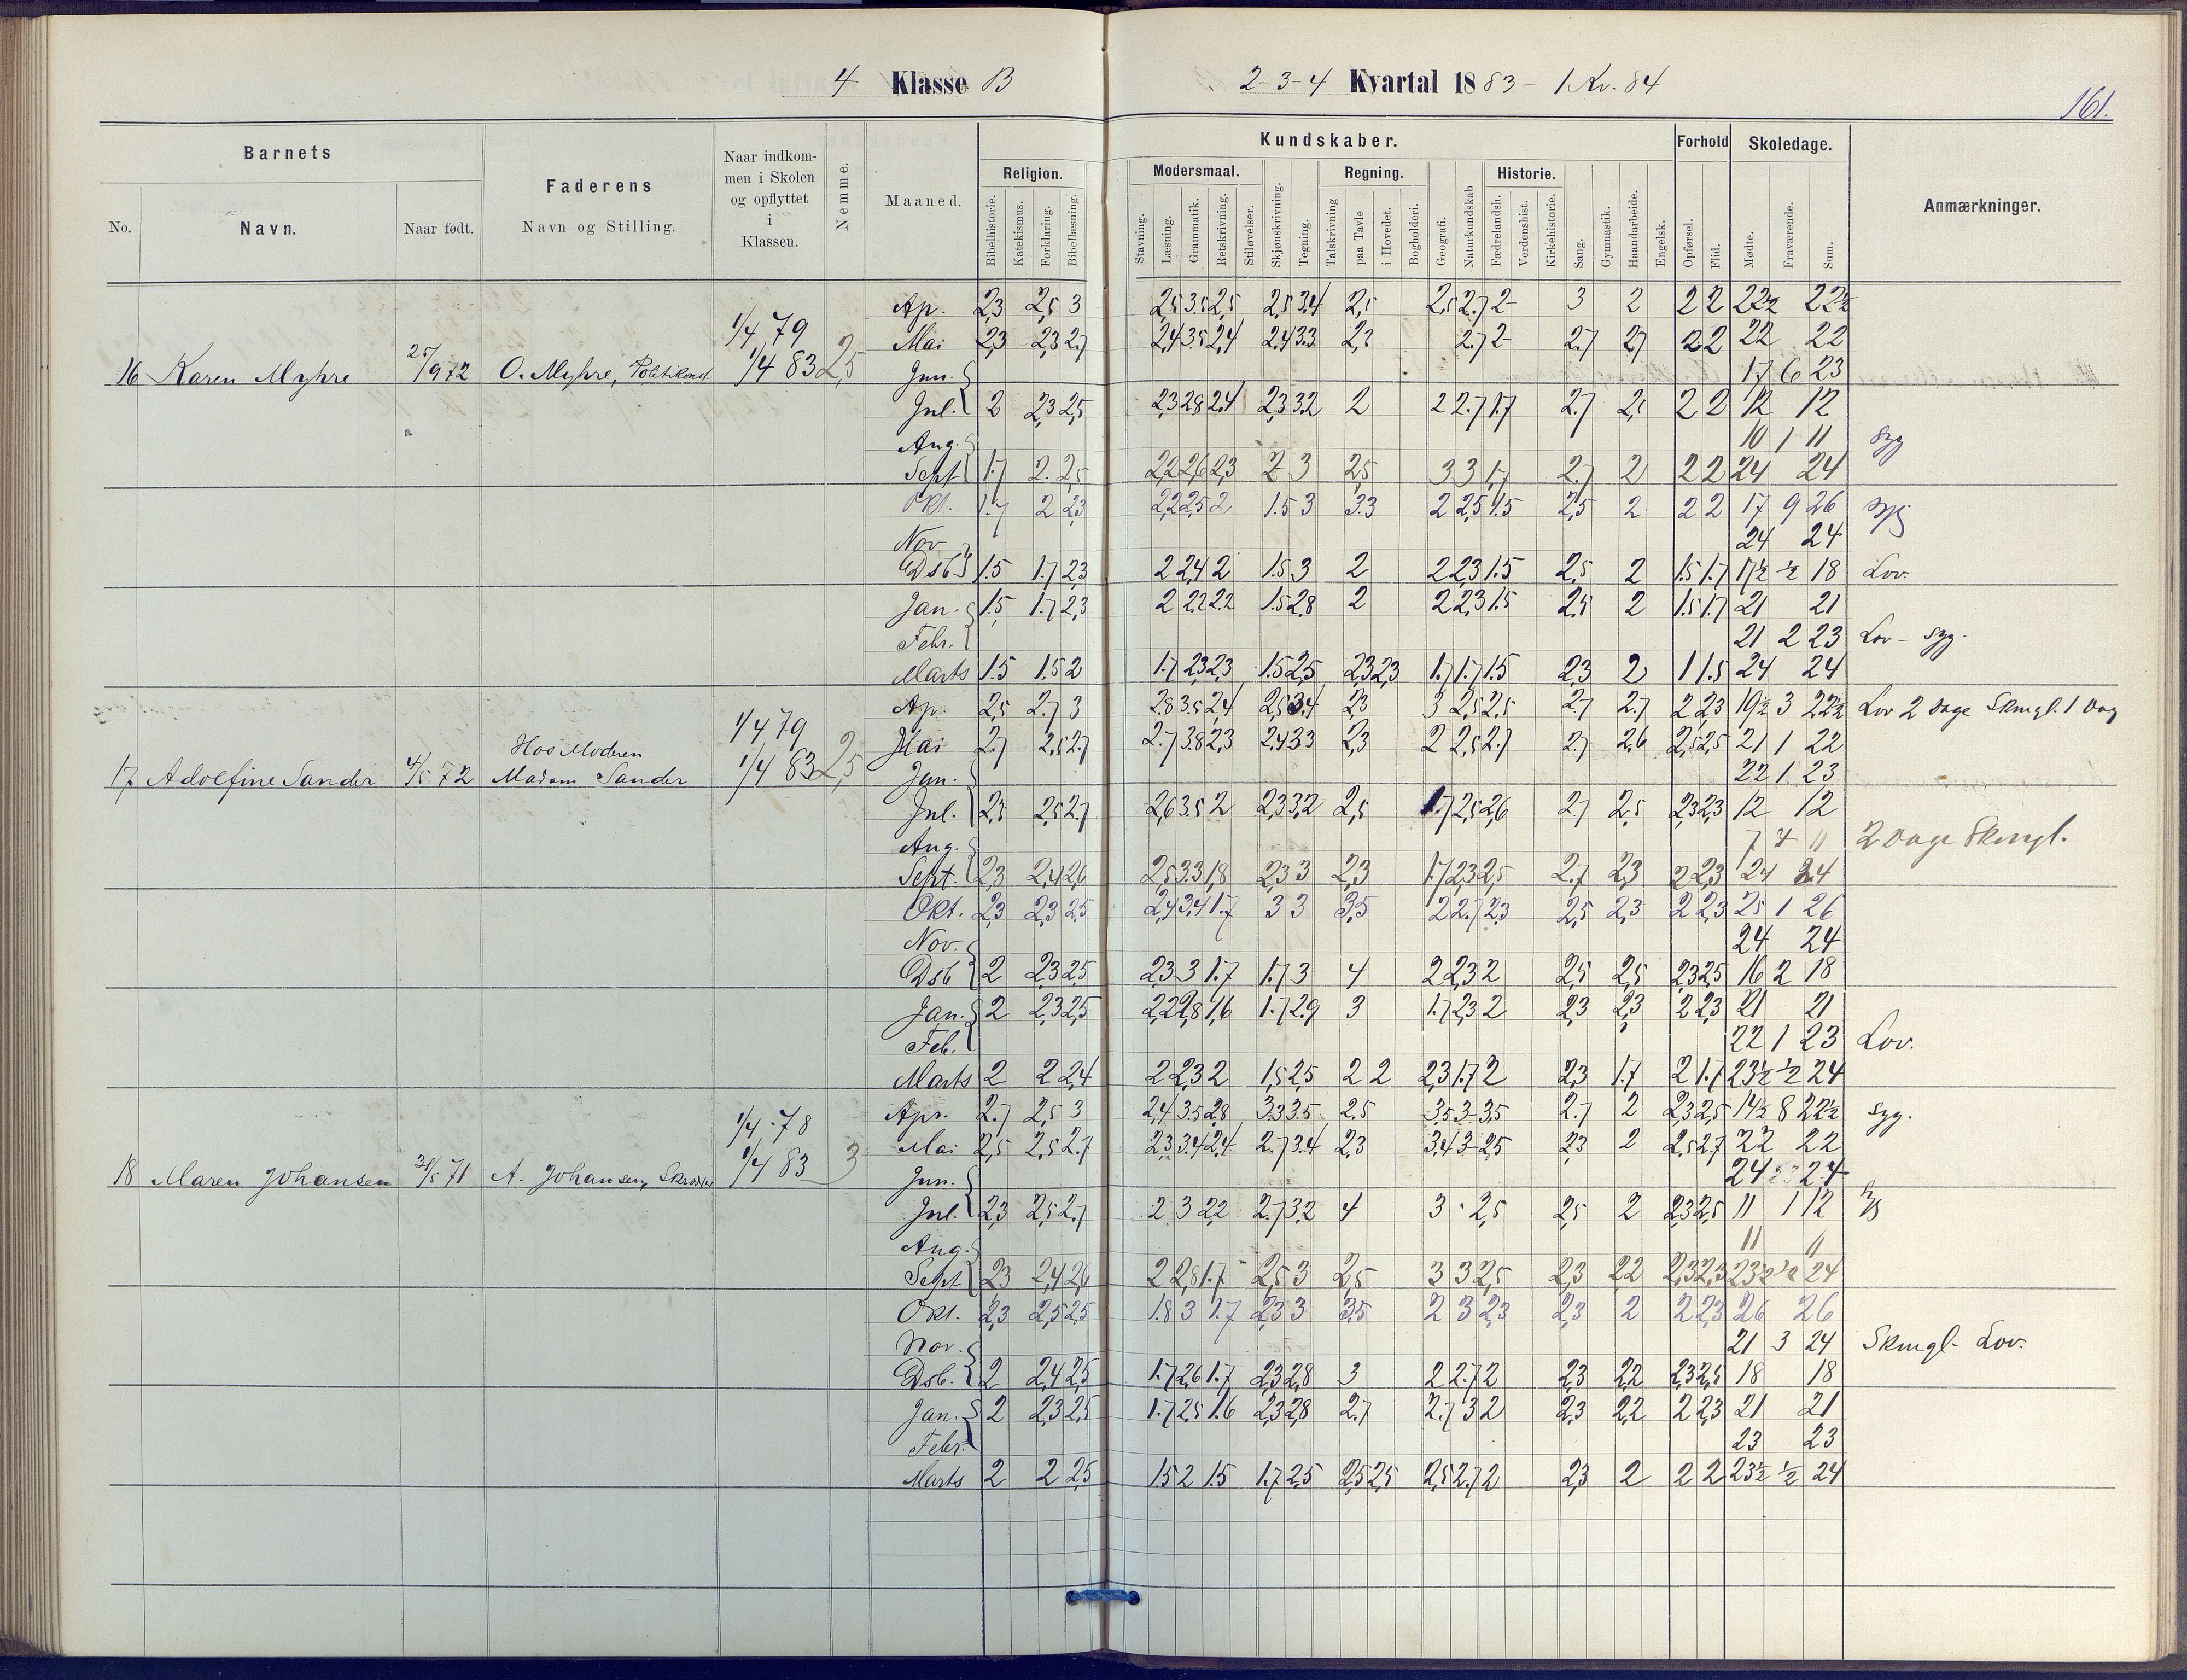 4 Klasse B 2-3-4 Kvartal 1883 - 1 Kv. 84
161.
Barnets
Faderens
Naar indkom-
men i Skolen
og opflyttet
i
Klassen.
Nemme.
Maaned.
Kundskaber.
Forhold
Skoledage.
Anmærkninger.
No.
Navn.
Naar født.
Navn og Stilling.
Religion.
Modersmaal.
Regning.
Historie.
Bibelhistorie.
Katekismus.
Forklaring.
Bibellæsning.
Stavning.
Læsning.
Grammatik.
Retskrivning.
Stiløvelser.
Skjønskrivning.
Tegning.
Talskrivning
paa Tavle
i Hovedet.
Bogholderi.
Geografi.
Naturkundskab
Fædrelandsh.
Verdenshist.
Kirkehistorie.
Sang.
Gymnastik.
Haandarbeide.
Engelsk.
Opførsel.
Flid.
Mødte.
Fraværende.
Sum.
16 Karen Myhre 25/9 72 O. Myhre, Politikonst. 1/4 79 1/4 83 2,5
Ap. 2,3 2,5 3 2,5 3.5 2,5 2,5 3.4 2,5 2,5 2.7 2- 3 2 2 2 22½ 22½
Mai 2,3 2,3 2.7 2,4 3.5 2,4 2.4 3.3 2,3 2.7 2- 2.7 2 2 22 22
Jun. 17 6 23
Jul. 2 2,3 2,5 2,3 2.8 2,4 2,3 3.2 2 2 2.7 1.7 2.7 2 2 12 12
Aug. 10 1 11 Syg
Sept 1.7 2. 2,5 2,2 2,6 2,3 2 3 2,5 3 3 1,7 2.7 2 2 2 24 24
Okt. 1.7 2 2,3 2,2 2,5 2 1.5 3 3.3 2 2,5 1.5 2,5 2 2 2 17 9 26 Syg
Nov 24 24
Dsb 1.5 1.7 2,3 2 2,4 2 1.5 3 2 2 2,3 1.5 2,5 2 1.5 1.7 17½ ½ 18 Lov.
Jan. 1.5 1.7 2,3 2 2.2 2.2 1.5 2.8 2 2 2,3 1.5 2,5 2 1.5 1.7 21 21
Febr. 21 2 23 Lov - Syg.
Marts 1.5 1.5 2 1.7 2,3 2,3 1.5 2,5 2,3 2,3 1.7 1.7 1.5 2,3 2 1 1.5 24 24
17 Adolfine Sander 4/5 72 Hos Moderen Madam Sander 1/4 79 1/4 83 2,5
Ap. 2,5 2.7 3 2.8 3.5 2,4 2,5 3,4 2,3 3 2,5 2,5 2.7 2.7 2 2,3 19½ 3 22½ Lov 2 Dage Skmgl. 1 Dag
Mai 2.7 2,5 2.7 2.7 3.8 2,3 2,4 3.3 2,3 2 2,5 2.7 2.7 2.6 2,5 2,5 21 1 22
Jun. 22 1 23
Jul. 2,5 2,5 2.7 2,6 3.5 2 2,3 3.2 2,5 1.7 2,5 2,6 2.7 2,5 2,3 2,3 12 12
Aug. 7 4 11 2 Dage Skmgl.
Sept. 2,3 2,4 2,6 2,5 3.3 1,8 2,3 3 2,3 1.7 2,3 2,5 2.7 2,3 2 2,3 24 24
Okt. 2,3 2,3 2,5 2,4 3,4 1.7 3 3 3,5 2 2.7 2,3 2,5 2,3 2 2,3 25 1 26
Nov. 24 24
Dsb 2 2,3 2,5 2,3 3 1.7 1.7 3 4 2 2,3 2 2,5 2,5 2,3 2,5 16 2 18
Jan. 2 2,3 2,5 2,2 2,8 1,6 1.7 2.9 3 1.7 2,3 2 2,3 2,3 2 2,3 21 21
Feb. 22 1 23 Lov.
Marts 2 2 2,4 2 2,3 2 1,5 2,5 2 2 2,3 1.7 2 2,3 1.7 2 1.7 23½ ½ 24
18 Maren Johansen 31/5 71 A. Johansen, Skrædder 1/4 78 1/4 83 3
Apr. 2.7 2,5 3 2,4 3.5 2,8 3.3 3.5 2.5 3.5 3- 3.5 2.7 2 2,3 2,5 14½ 8 22½ Syg.
Mai 2,5 2,5 2.7 2,3 3.4 2,4 2.7 3.4 2,3 3.4 3- 2,5 2,3 2 2,5 2.7 22 22
Jun. 24 24
Jul. 2,3 2,5 2.7 2 3 2,2 2.7 3.2 4 3 2,5 2,5 2 2,3 2,5 11 1 12
Aug. 11 11
Sept 2,3 2,4 2,6 2 2,8 1.7 2,5 3 2,5 3 3 2,5 2,3 2,2 2,3 2,3 23½ ½ 24
Okt. 2,3 2,5 2,5 1.8 3 1.7 2,3 3 3.5 2 3 2,3 2,3 2 2 2,3 26 26
Nov. 21 3 24 Skmgl - Lov.
Dsb. 2 2,4 2,5 1.7 2,6 1.7 2,3 2,8 3 2 2.7 2 2,3 2,2 2,3 2,5 18 18
Jan. 2 2,3 2,5 1.7 2,5 1.6 2,3 2,8 2.7 2.7 3 2 2,3 2,2 2 2,3 21 21
Febr. 23 23
Marts 2 2 2,5 1.5 2 1.5 1.7 2.5 2,5 2,5 2,5 2.7 2 2,3 2 2 2 23½ ½ 24